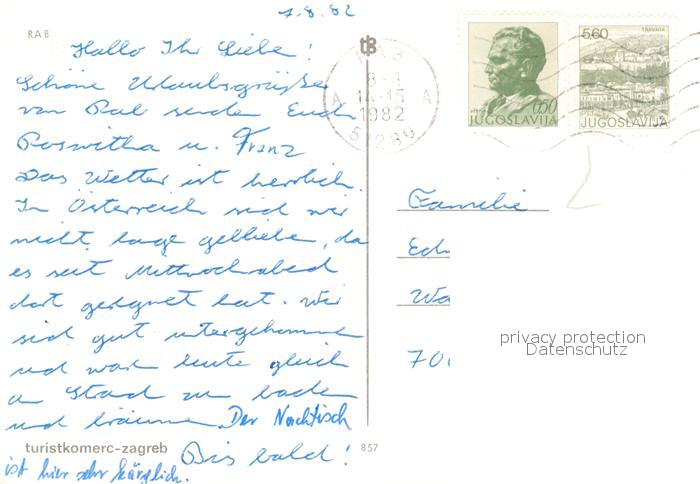 7.8.82
RAB
Hallo Ihr Liebe!
Schöne Urlaubsgrüße
von Rab sende Euch
Roswitha u. Franz
Das Wetter ist herrlich.
In Österreich sind wir
nicht lage geblieben, da
es seit Mittwochabend
dort geregnet hat. Wir
sind gut untergekommen
und war heute gleich
a Strand zu baden
und bräunen. Der Nachtisch
ist hier sehr kärglich.
Bis bald!
turistkomerc-zagreb
857
tB
RAB
8-8
14-15
A A
1982
51280
0,50
JUGOSLAVIJA
5.60
TRAVNIK
JUGOSLAVIJA
Familie
privacy protection
Datenschutz